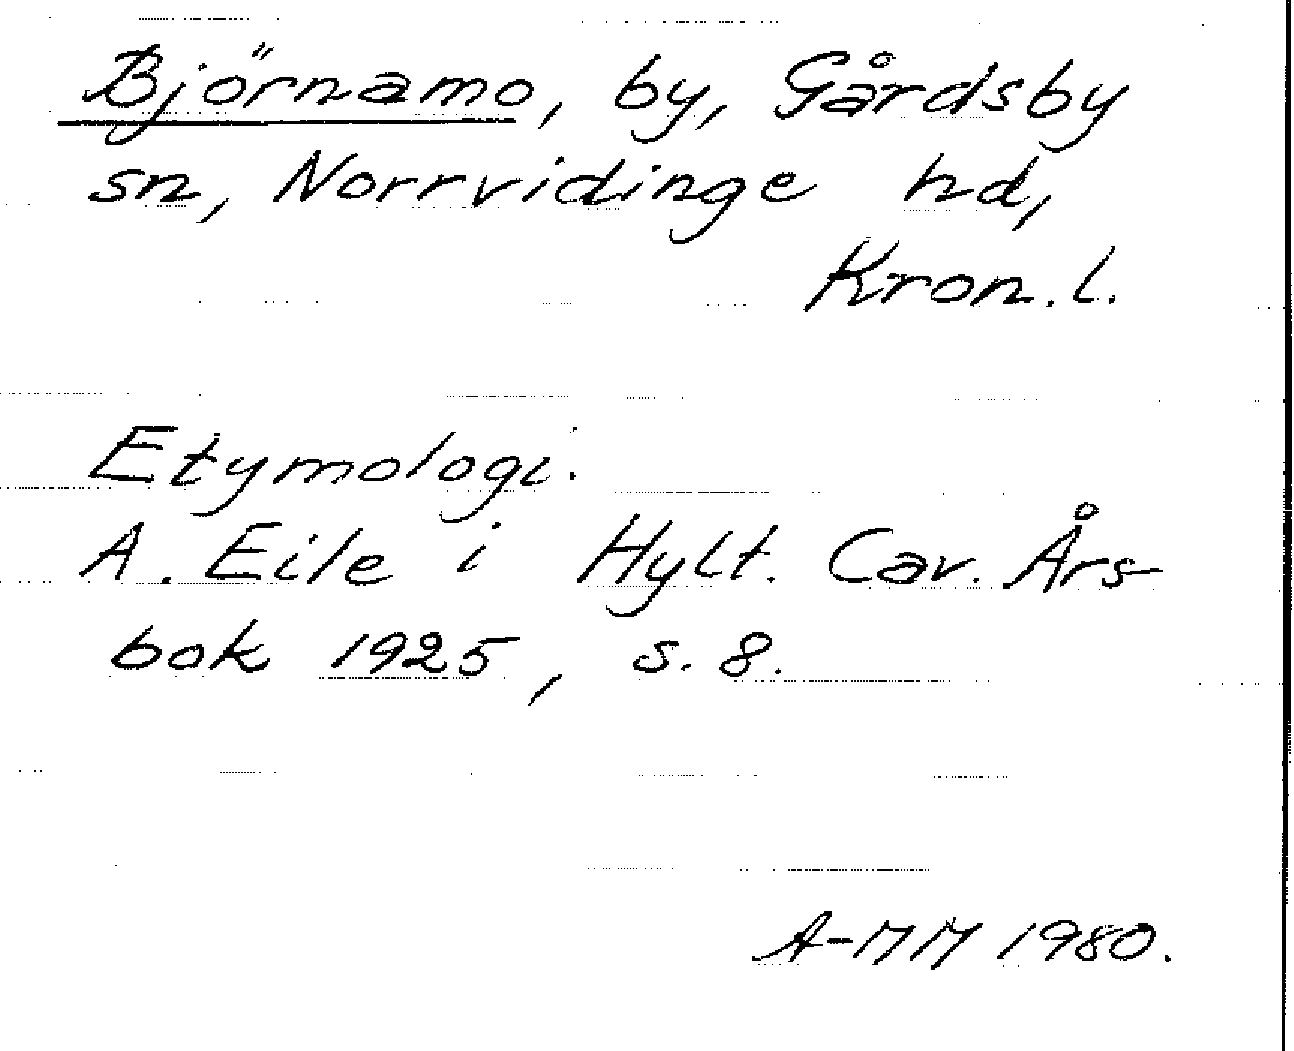 Björnamo, by, Gårdsby
sn, Norrvidinge hd,
Kron. l.
Etymologi.
A. Eile i Hylt. Cav. Års-
bok 1925, s. 8.
A-MM 1980.